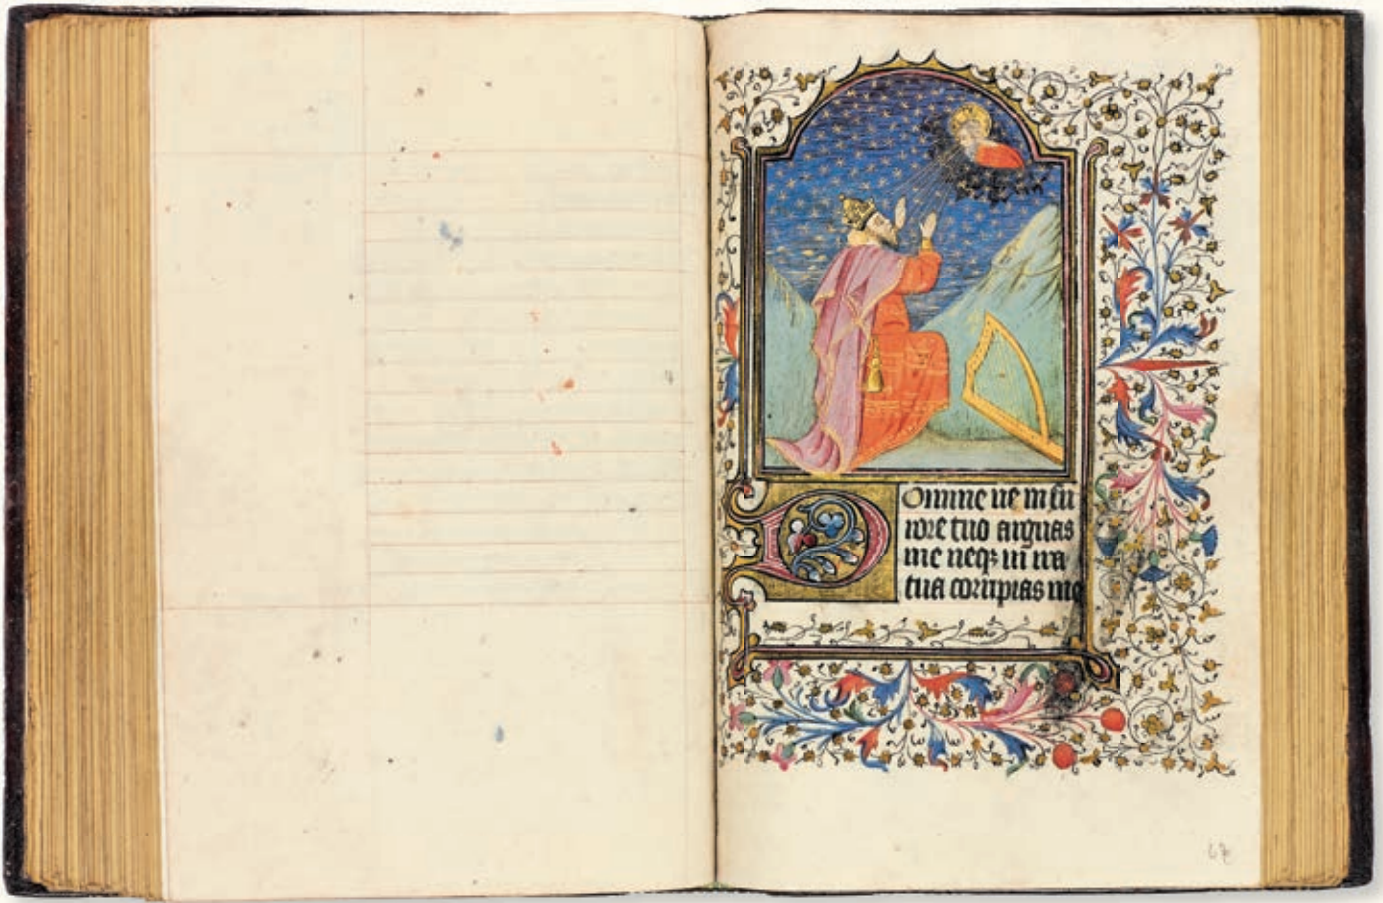 Domine ne in fu
rore tuo arguas
me neq₃ in ira
tua corripias me
67